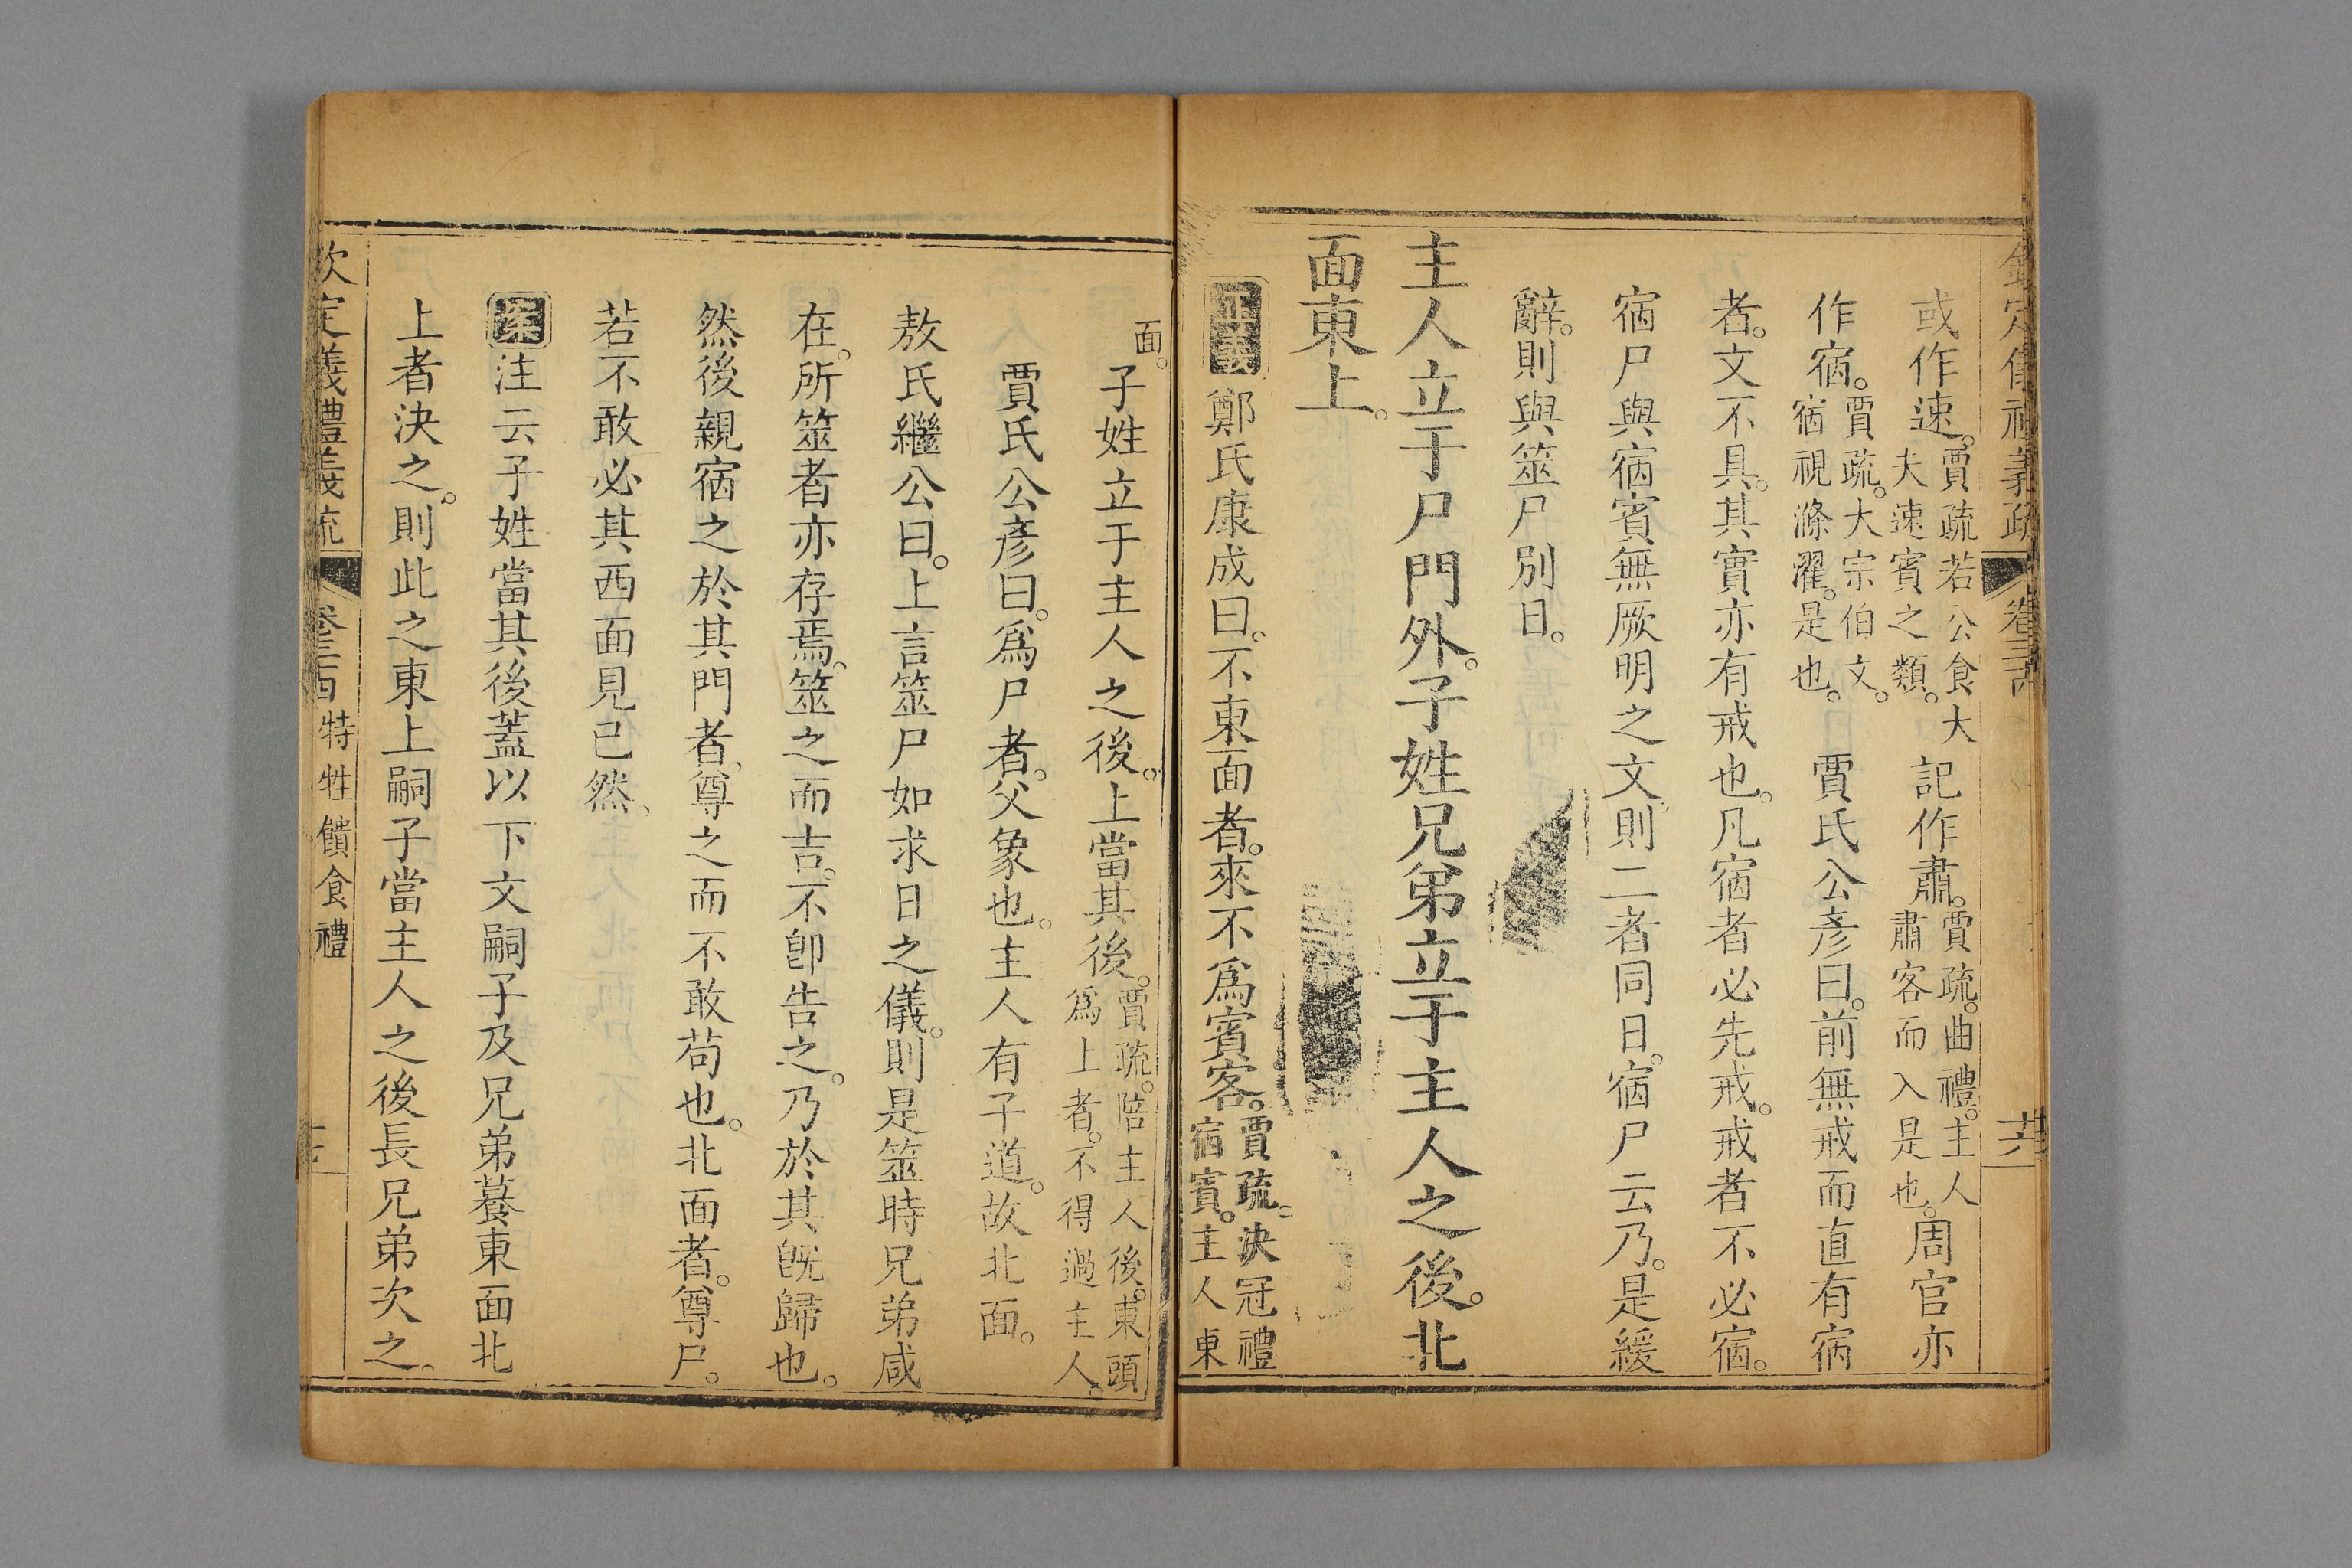 欽定儀禮義疏 卷三十四
或作速。賈疏若公食大夫速賓之類。記作肅。賈疏。曲禮。主人肅客而入是也。周官亦
作宿。賈疏。大宗伯文。宿視滌濯。是也。賈氏公彥曰。前無戒而直有宿
者。文不具。其實亦有戒也。凡宿者必先戒。戒者不必宿。
宿尸與宿賓無厥明之文則二者同日。宿尸云乃。是緩
辭。則與筮尸別日。
主人立于尸門外。子姓兄弟立于主人之後。北
面東上。
正義鄭氏康成曰。不東面者。來不爲賓客。賈疏。決冠禮宿賓。主人東
面。子姓立于主人之後。上當其後。賈疏。陪主人後。東頭爲上者。不得過主人。
賈氏公彥曰。爲尸者。父象也。主人有子道。故北面。
敖氏繼公曰。上言筮尸如求日之儀。則是筮時兄弟咸
在。所筮者亦存焉。筮之而吉。不卽告之。乃於其旣歸也。
然後親宿之於其門者、尊之而不敢苟也。北面者。尊尸。
若不敢必其西面見已然、
案注云子姓當其後蓋以下文嗣子及兄弟䭕東面北
上者決之。則此之東上嗣子當主人之後長兄弟次之。
欽定義禮義疏 卷三十四 特牲饋食禮